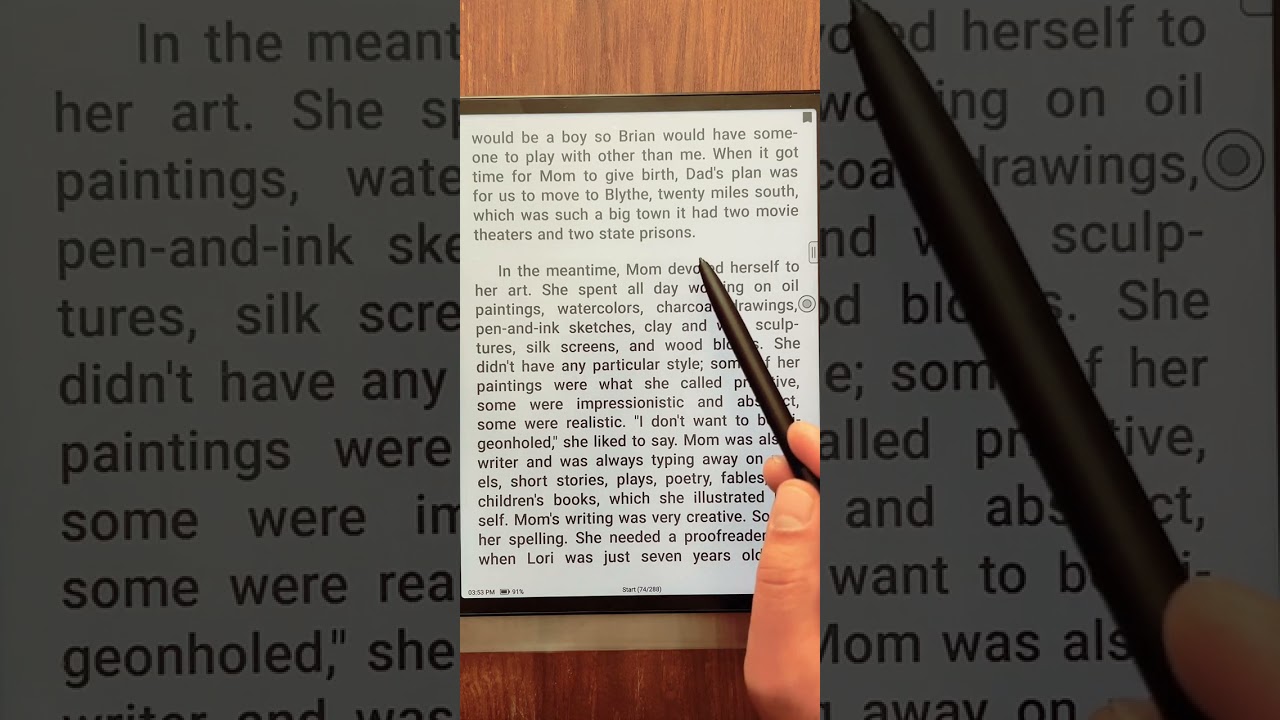 would be a boy so Brian would have some-
one to play with other than me. When it got
time for Mom to give birth, Dad's plan was
for us to move to Blythe, twenty miles south,
which was such a big town it had two movie
theaters and two state prisons.
In the meantime, Mom devoted herself to
her art. She spent all day working on oil
paintings, watercolors, charcoal drawings,
pen-and-ink sketches, clay and sculp-
tures, silk screens, and wood blocks. She
didn't have any particular style; some of her
paintings were what she called primitive,
some were impressionistic and abstract,
some were realistic. "I don't want to be
geonholed," she liked to say. Mom was also
writer and was always typing away on
els, short stories, plays, poetry, fables,
children's books, which she illustrated
self. Mom's writing was very creative. So
her spelling. She needed a proofreader
when Lori was just seven years old
03:53 PM 91% Start (74/288)